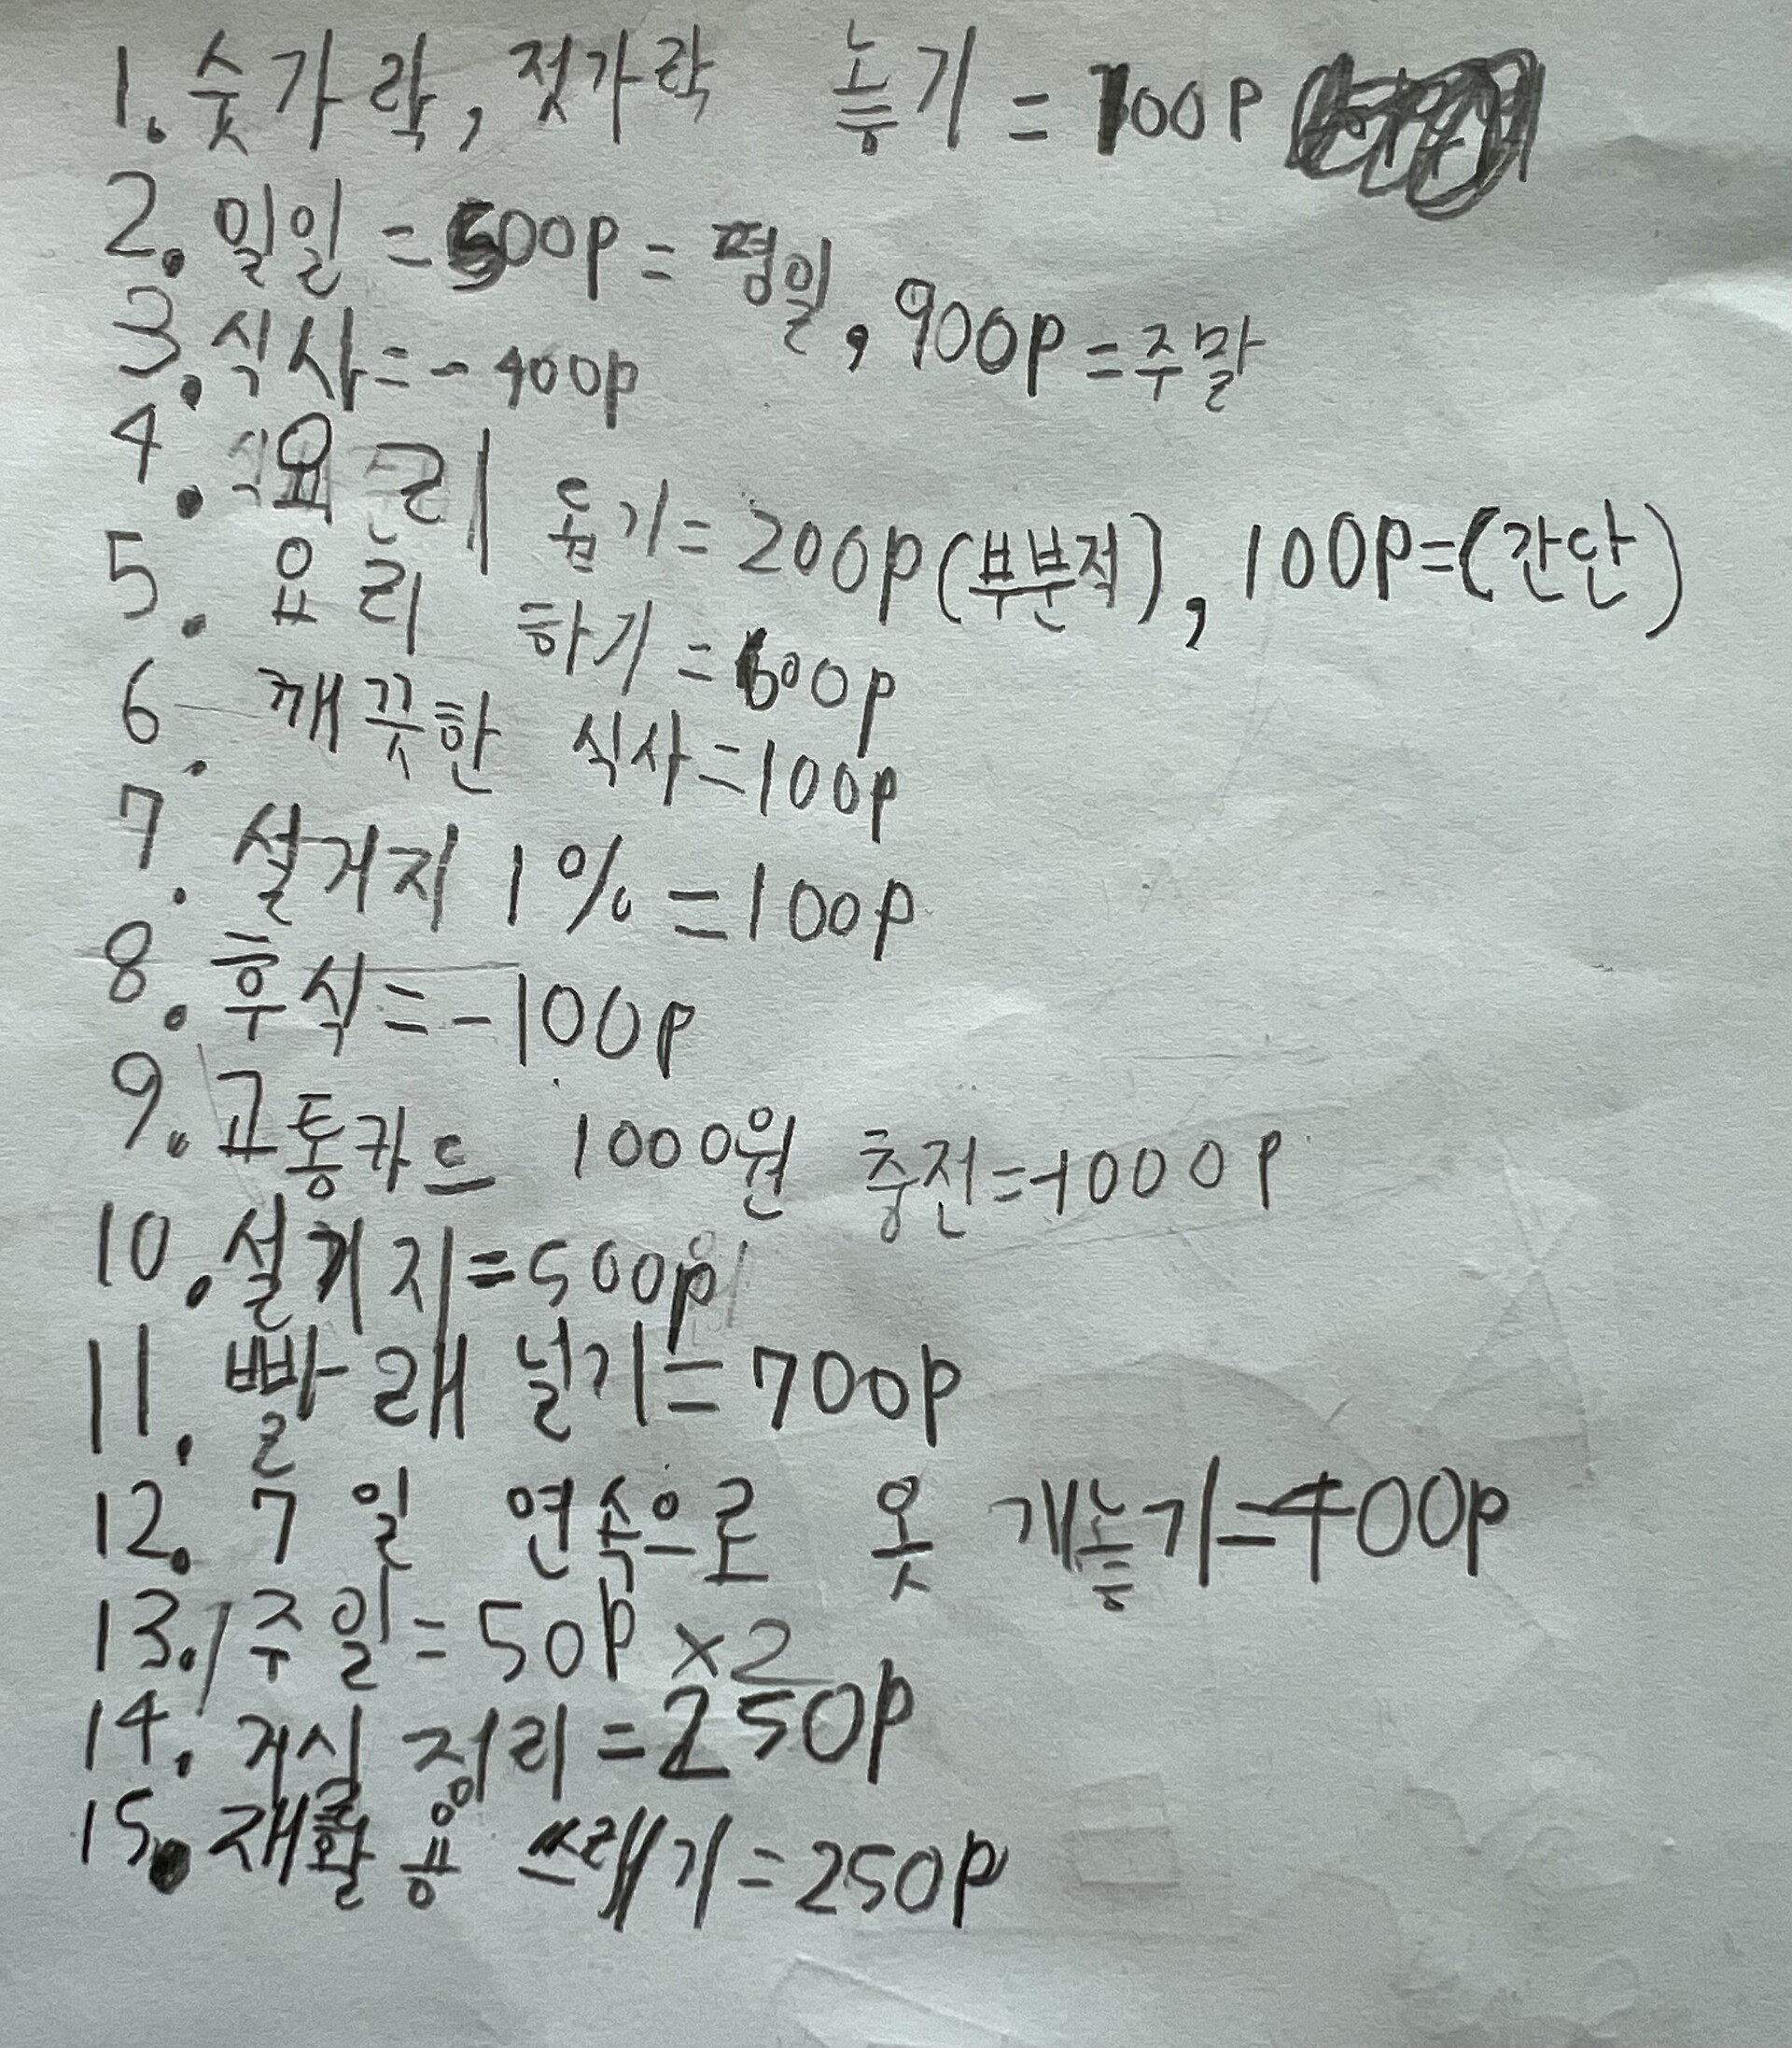 1. 숫가락, 젓가락 놓기 = 100P
2. 일일 = 500P = 평일, 900P = 주말
3. 식사 = - 400P
4. 요리 돕기 = 200P (부분적), 100P = (간단)
5. 요리 하기 = 600P
6. 깨끗한 식사 = 100P
7. 설거지 1% = 100P
8. 후식 = -100P
9. 교통카드 1000원 충전 = -1000P
10. 설거지 = 500P
11. 빨래 널기 = 700P
12. 7일 연속으로 옷 개놓기 = 400P
13. 1주일 = 50P × 2
14. 거실 정리 = 250P
15. 재활용 쓰레기 = 250P